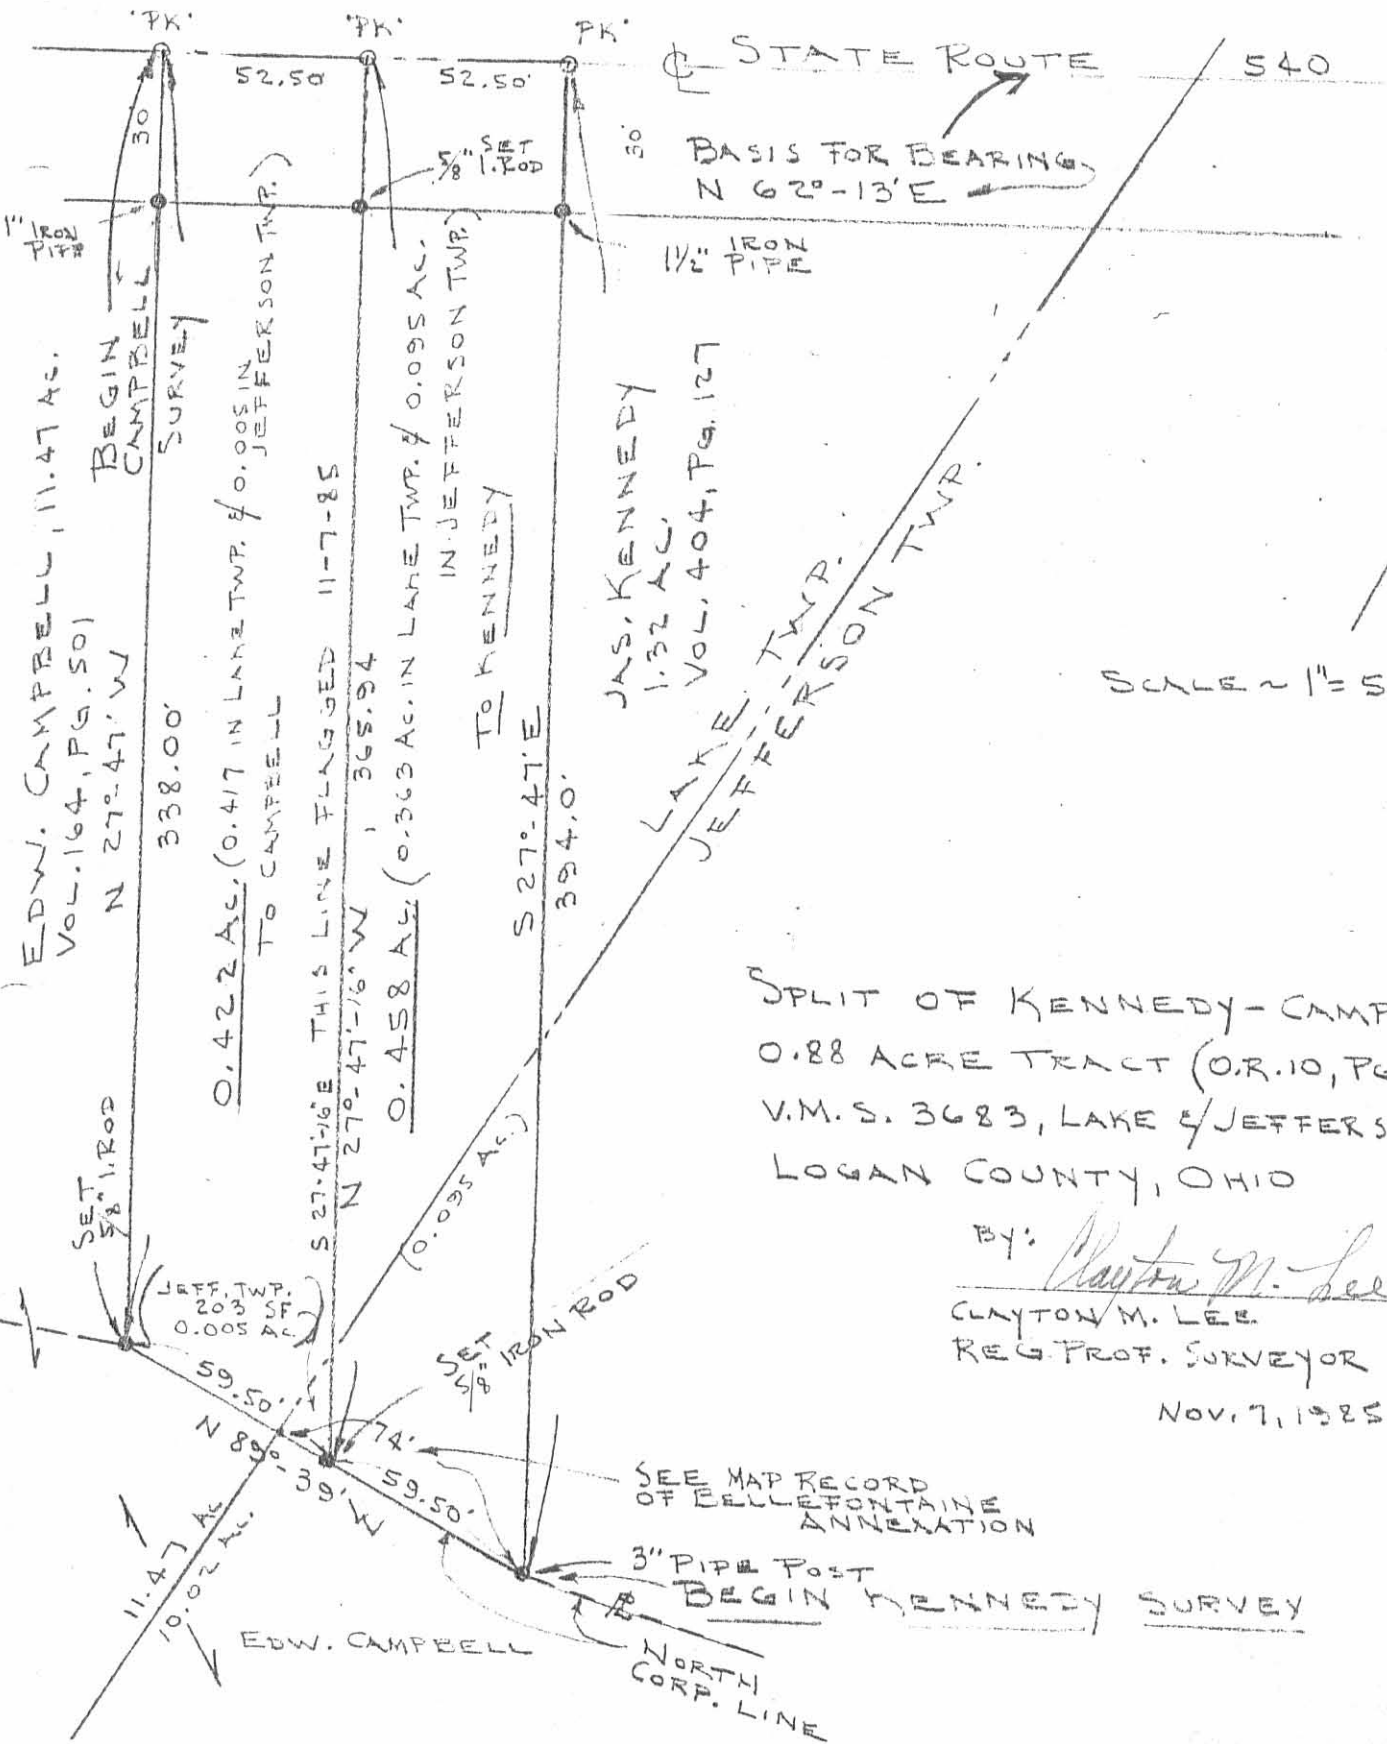 'PK'
'PK'
'PK'
℄ STATE ROUTE 540
52.50'
52.50'
30'
30'
SET
5/8" I.ROD
BASIS FOR BEARING
N 62°-13'E
1" IRON
PIPE
1 1/2" IRON
PIPE
EDW. CAMPBELL, 11.47 AC.
VOL. 164, PG. 501
N 27°-47' W
338.00'
BEGIN
CAMPBELL
SURVEY
0.422 AC. (0.417 IN LAKE TWP. & 0.005 IN
JEFFERSON TWP.)
TO CAMPBELL
S 27-47-16"E THIS LINE FLAGGED 11-7-85
N 27°-47'-16" W, 365.94
0.458 AC. (0.363 AC. IN LAKE TWP. & 0.095 AC.
IN JEFFERSON TWP.)
TO KENNEDY
S 27°-47'E
394.0'
JAS. KENNEDY
1.32 AC.
VOL. 404, PG. 127
LAKE TWP.
JEFFERSON TWP.
SCALE ~ 1"= 5
(0.095 AC.)
SPLIT OF KENNEDY-CAMP
0.88 ACRE TRACT (O.R.10, PG
V.M.S. 3683, LAKE & JEFFERS
LOGAN COUNTY, OHIO
BY: Clayton M. Lee
CLAYTON M. LEE
REG. PROF. SURVEYOR
NOV. 7, 1985
SET
5/8" I.ROD
(JEFF. TWP.
203 SF
0.005 AC.)
SET
5/8" IRON ROD
59.50'
N 89°-39' W
74'
59.50'
SEE MAP RECORD
OF BELLEFONTAINE
ANNEXATION
3" PIPE POST
BEGIN KENNEDY SURVEY
11.47 AC
10.02 AC.
EDW. CAMPBELL
℄
NORTH
CORP. LINE